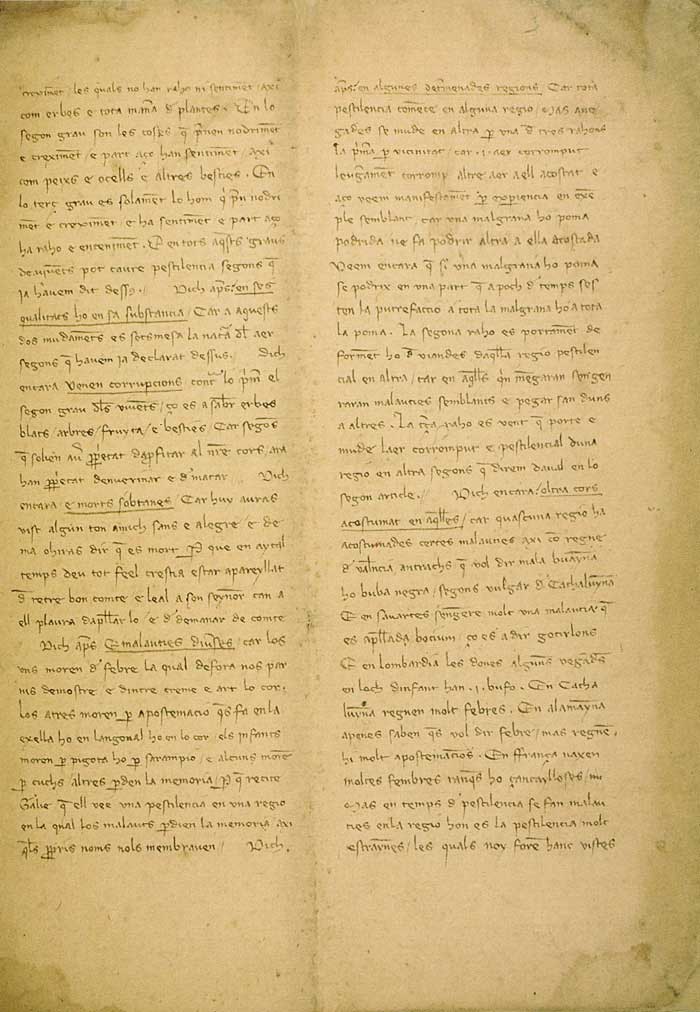 creximet / les quals no han raho ni sentimet / axi
com erbes e tota mana d plantes. En lo
segon grau son les coses q prenen nodrimet
e creximet / e part aço han sentimet / axi
com peixs e ocells e altres besties. En
lo terç grau es solamet lo hom q pn nodri
met e creximet e ha sentimet e part aço
ha raho e entenimet. E en tots aqsts graus
de viuets pot caure pestilencia segons q
ia havem dit dessus. / Dich aps: en ses
qualitats ho en sa substancia / Car a aquests
dos mudamets es sotsmesa la nata dl aer
segons q havem ia declarat dessus. Dich
encara venen corrupcions cont lo pm el
segon grau dls viuets / ço es a sabr erbes
blats / arbres / fruyta / e besties. Car segos
q solien au ppetat dapfitar al nre cors / ara
han ppetat denverinar e d matar Dich
encara / e morts sobtanes / Car huy auras
vist algun ton amich sans e alegre e de
ma ohiras dir q es mort. P que en aytal
temps deu tot feel crestia estar apareyllat
d retre bon comte e leal a son seynor can a
ell plaura dapllar lo e d demanar de comte
Dich aps E malauties diuses / car los
vns moren d febre la qual defora nos par
nis demostre e dintre creme e art lo cor.
Los atres moren p apostemacio qs fa en la
exella ho en langonal ho en lo cor els infants
moren p pigota ho p sarampio / e alcuns more
p cuchs altres pden la memoria / P q recite
Galie q ell vee una pestilencia en una regio
en la qual los malauts pdien la memoria axi
qls ppris noms nols membraven / Dich.
aps: en algunes detmenades regions / Car tota
pestilencia comece en alguna regio / Mas ane
gades se mude en altra p una d tres rahons
la pma p vicinitat / car .i. aer corromput
leugamet corromp altre aer a ell acostat e
aço veem manifestamet p expiencia en exe
ple semblant / car una malgrana ho poma
podrida ne fa podrir altra a ella acostada
Veem encara q si una malgrana ho poma
se podrix en una part q a poch d temps ses
ten la putrefaccio a tota la malgrana ho a tota
la poma. La segona raho es portamet de
formet ho d viandes daqlla regio pestilen
cial en altra / car en aqlls qn megaran sengen
raran malauties semblants e pegar san duns
a altres. La tça raho es vent q porte e
mude laer corromput e pestilencial duna
regio en altra segons q direm davall en lo
segon article. / Dich encara: oltra cors
acostumat en aqlles / car quascuna regio ha
acostumades certes malauties axi co regne
d valencia antrachs q vol dir mala buayna
ho buba negra / segons vulgar d Cathaluyna
E en savartes sengere molt una malautia q
es apllada bocium ço es a dir gotirlons
E en lombardia les dones alguns vegades
en loch dinfant han .i. bufo. En Catha
luyna regnen molt febres. En alamayna
apenes saben qs vol dir febre / mas regne
hi molt apostemacios. En ffrança naxen
moltes fembres ranqs ho çancaylleses /
Mas en temps d pestilencia se fan malau
ties en la regio hon es la pestilencia molt
estraynes / les quals noy foren hanc vistes